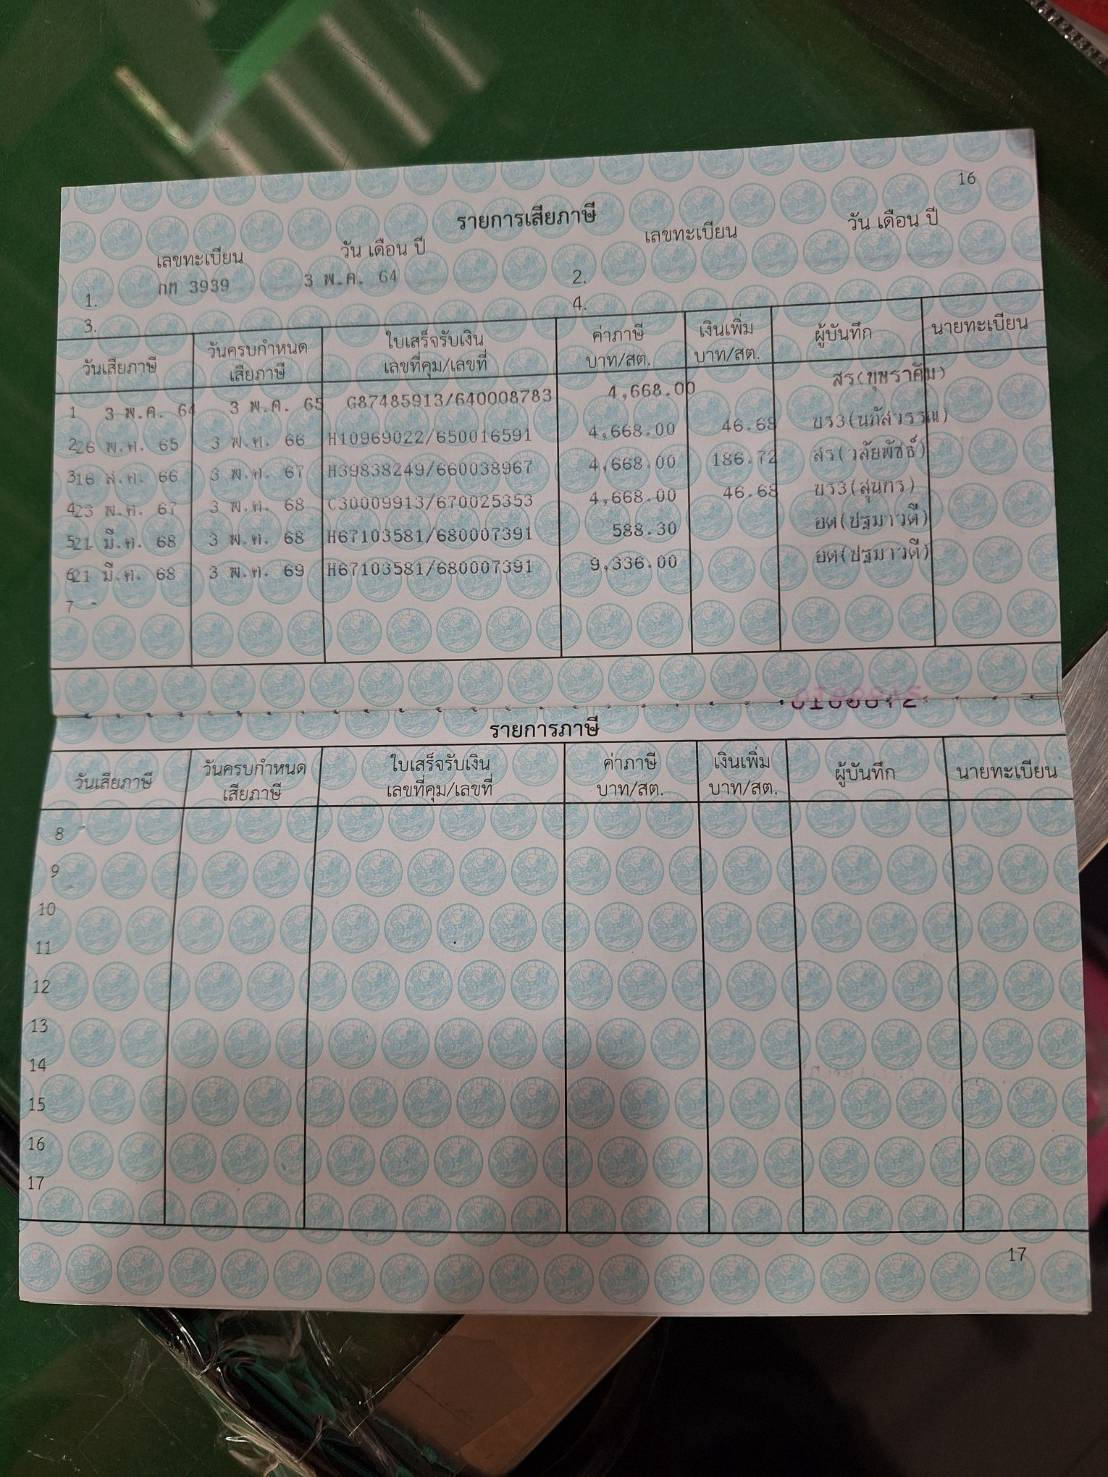 16
รายการเสียภาษี
เลขทะเบียน วัน เดือน ปี เลขทะเบียน วัน เดือน ปี
1. กท 3939 3 พ.ค. 64 2.
3. 4.
วันเสียภาษี วันครบกำหนด เสียภาษี ใบเสร็จรับเงิน เลขที่คุม/เลขที่ ค่าภาษี บาท/สต. เงินเพิ่ม บาท/สต. ผู้บันทึก นายทะเบียน
1 3 พ.ค. 64 3 พ.ค. 65 G87485913/640008783 4,668.00
2 26 พ.ค. 65 3 พ.ค. 66 H10969022/650016591 4,668.00 46.68
3 16 ส.ค. 66 3 พ.ค. 67 H39838249/660038967 4,668.00 186.72
4 23 พ.ค. 67 3 พ.ค. 68 C30009913/670025353 4,668.00 46.68
5 21 มี.ค. 68 3 พ.ค. 68 H67103581/680007391 588.30 ยต(ปฐมาวดี)
6 21 มี.ค. 68 3 พ.ค. 69 H67103581/680007391 9,336.00 ยต(ปฐมาวดี)
7
รายการภาษี
วันเสียภาษี วันครบกำหนด เสียภาษี ใบเสร็จรับเงิน เลขที่คุม/เลขที่ ค่าภาษี บาท/สต. เงินเพิ่ม บาท/สต. ผู้บันทึก นายทะเบียน
8
9
10
11
12
13
14
15
16
17
17